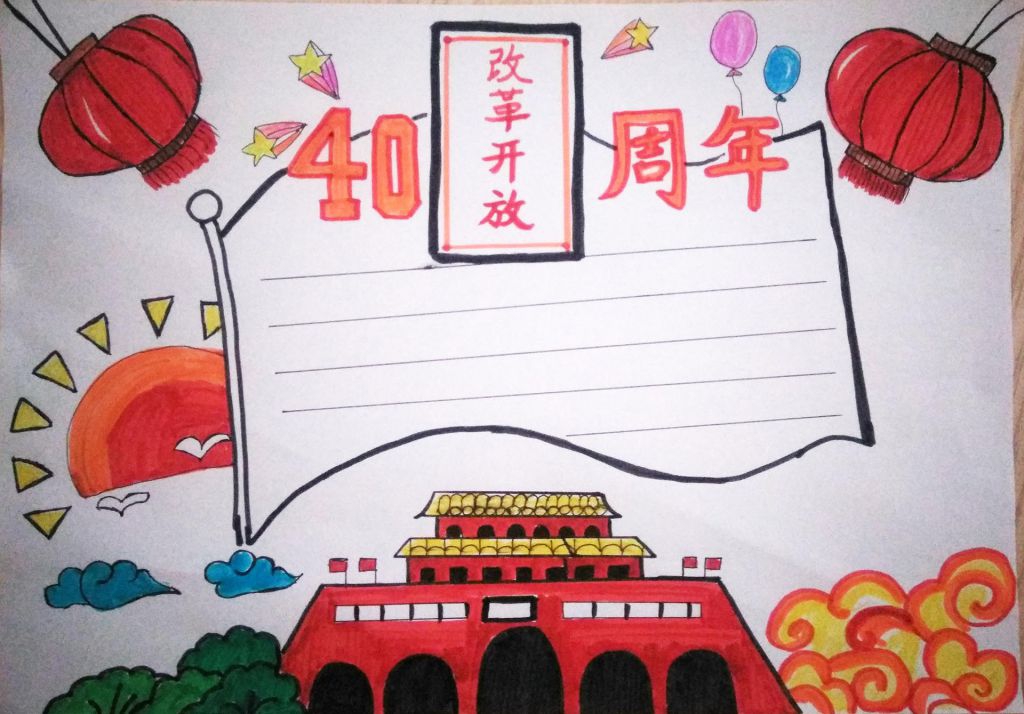 40
改革开放
周年